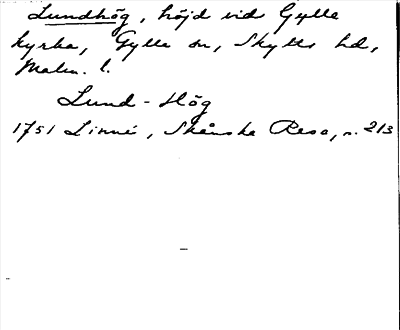 Lundhög, höjd vid Gylle
kyrka, Gylle sn, Skytts hd,
Malm. l.
Lund-Hög
1751 Linné, Skånska Resa, s. 213